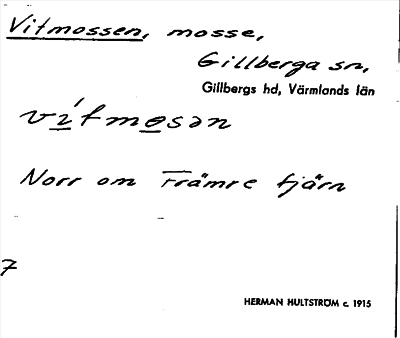 Vitmossen, mosse,
Gillberga sn,
Gillbergs hd, Värmlands län
vítmosən
Norr om Främre tjärn
7
HERMAN HULTSTRÖM c. 1915